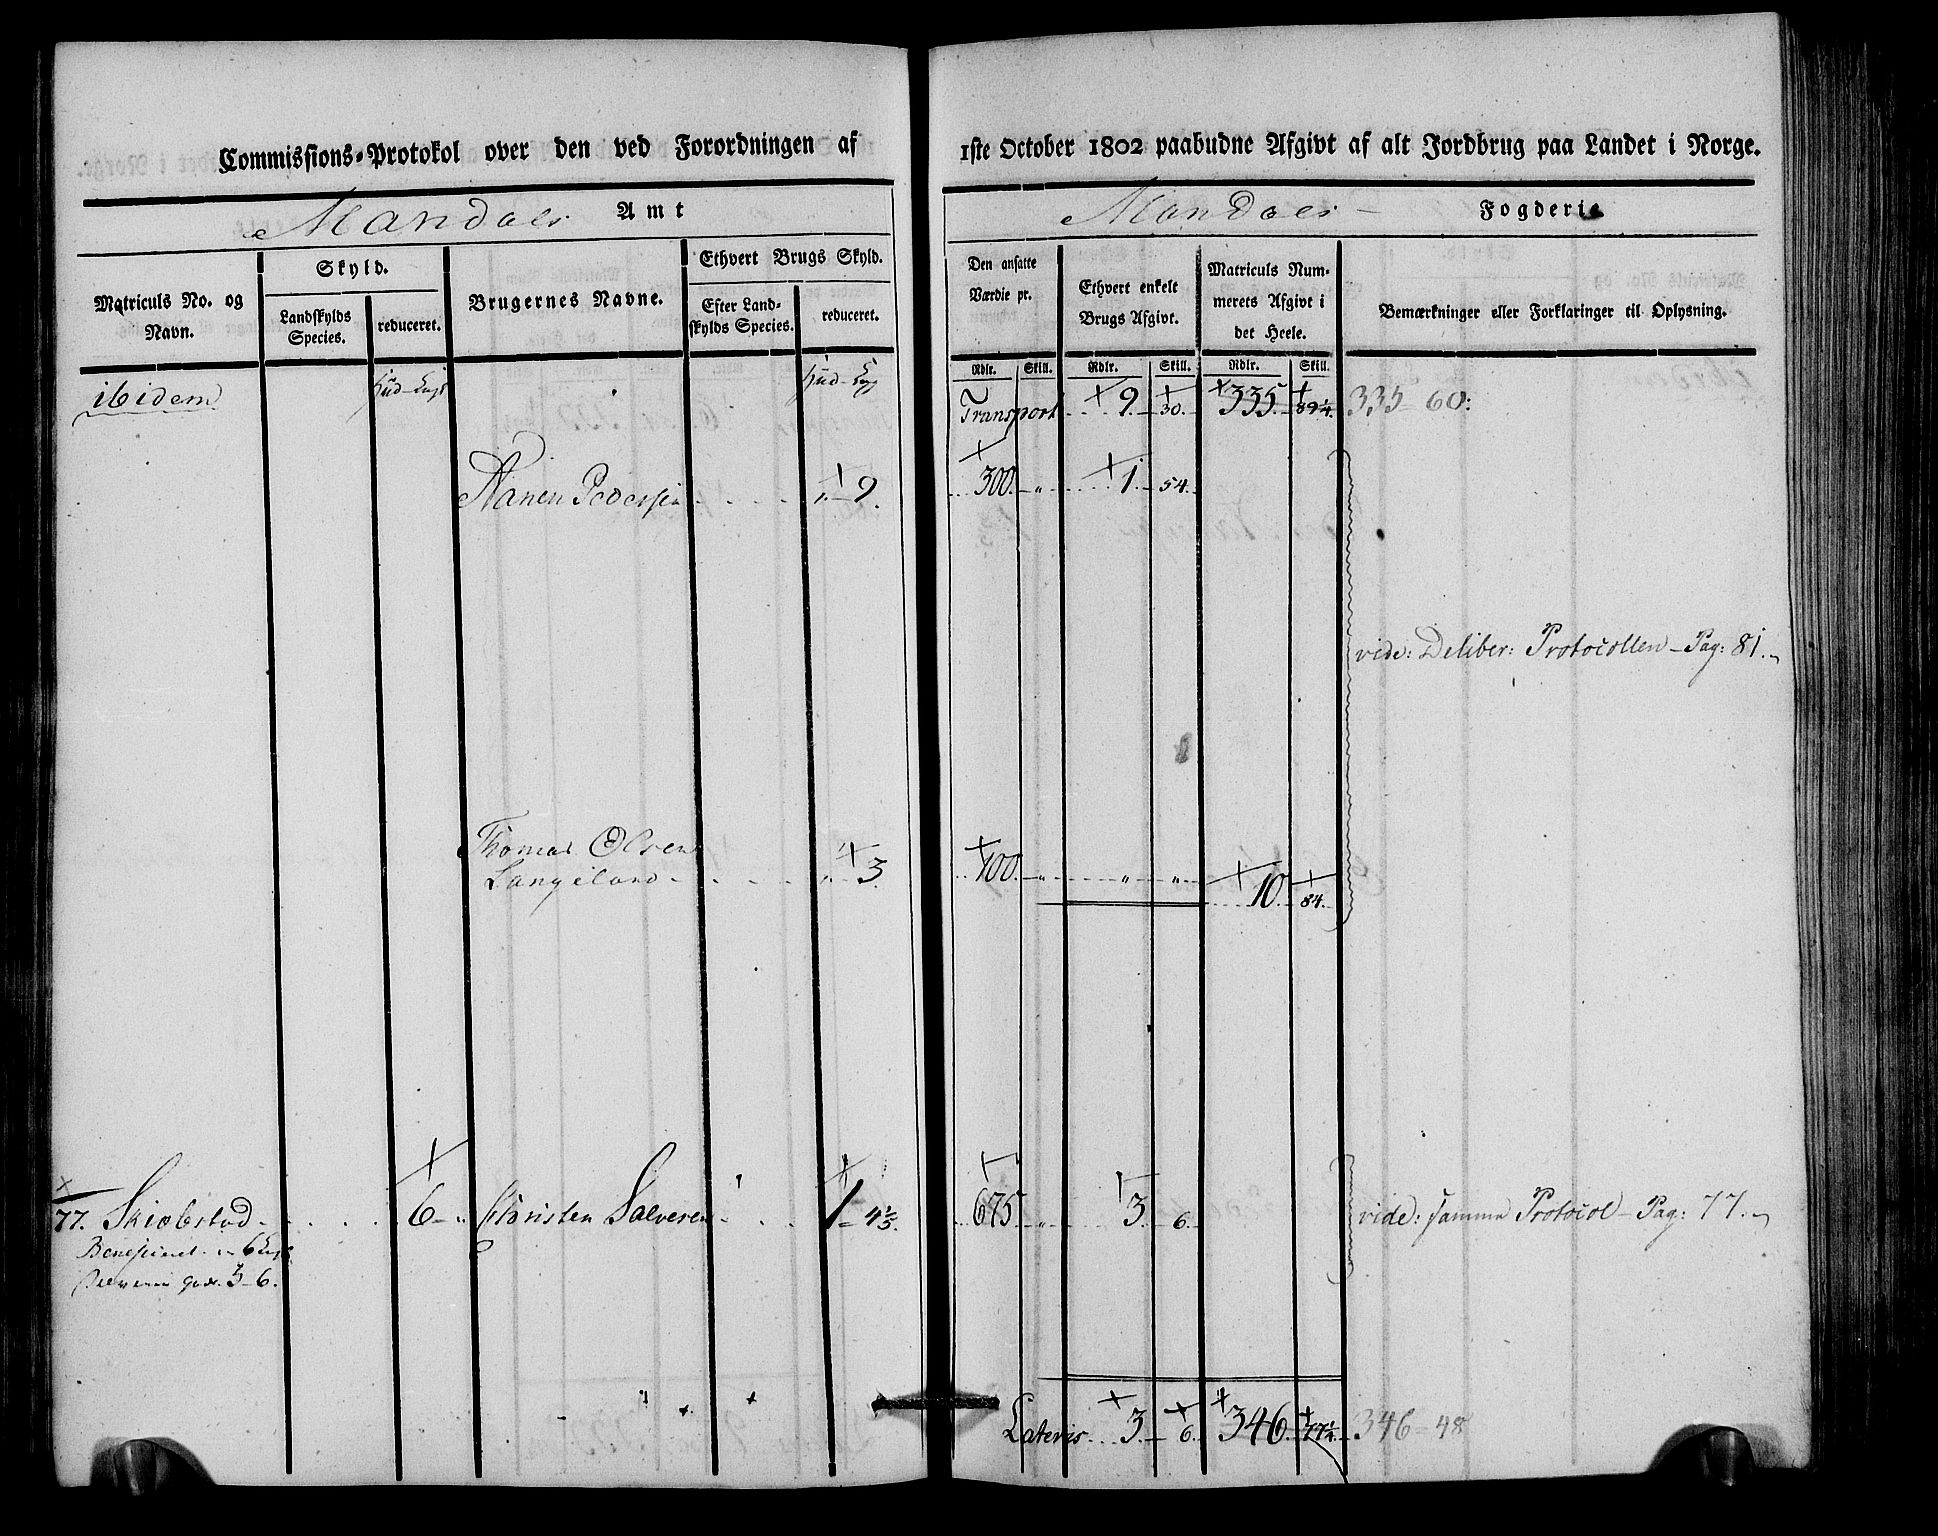 Commissions-Protokol over den ved Forordningen af 1ste October 1802 paabudne Afgivt af alt Jordbrug paa Landet i Norge.
Mandals Amt
Mandals Fogderie
Matriculs No. og Navn.
Skyld.
Landskylds Species.
reduceret.
Brugernes Navne.
Ethvert Brugs Skyld.
Efter Landskylds Species.
reduceret.
Den ansatte Værdie pr.
Ethvert enkelt Brugs Afgivt.
Matriculs Nummerets Afgivt i det Heele.
Bemærkninger eller Forklaringer til Oplysning.
Rdlr. Skill. Rdlr. Skill. Rdlr. Skill.
ibidem
Transport 9. 30. 335. 89 1/4. 335 60:
Nanen Pedersen 9. 300. 1. 54.
vide: Deliber: Protocollen - Pag: 81.
Thomas Olsen
Langeland 3. 100. 10. 84.
77. Skiøbstad 6 Christen Salvesen 1 - 4 1/2. 675 3. 6. vide: samme Protocol - Pag: 77.
Lateris 3. 6. 346. 77 1/4. 346-48